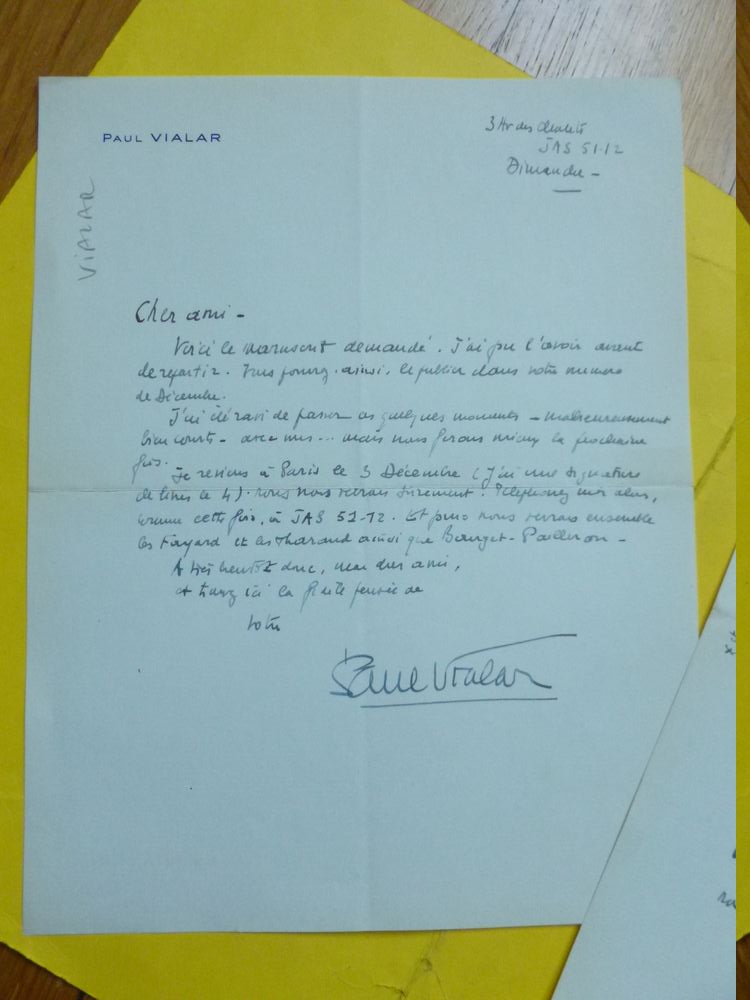 PAUL VIALAR
3 Av des Chalets
JAS 51-12
Dimanche -
VIALAR
Cher ami -
Voici le manuscrit demandé. J'ai pu l'avoir avant
de repartir. Vous pourrez, ainsi, le publier dans votre numéro
de Décembre.
J'ai été ravi de passer ces quelques moments - malheureusement
bien courts - avec vous... mais nous ferons mieux la prochaine
fois.
Je reviens à Paris le 3 Décembre (j'ai une signature
de livres le 4). Nous nous verrons sûrement. Téléphonez moi alors,
comme cette fois, à JAS 51-12. Et puis nous verrons ensemble
les Fayard et les Tharaud ainsi que Bourget-Pailleron -
A très bientôt donc, mon cher ami,
et trouvez ici la fidèle pensée de
votre
Paul Vialar